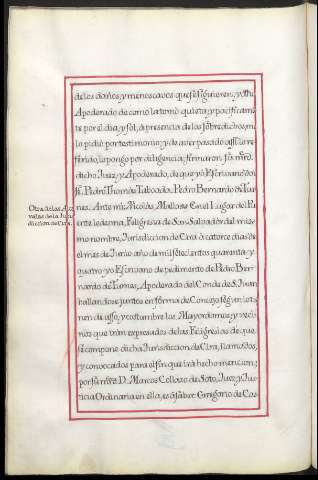 de los daños, y menoscavos que se siguieren, y otro
Apoderado de como la tomò quieta, y pacificamẽ
te por el dia, y sol, à presencia de los sobredichos, m
lo pidiò por testimonio, y de aver pasado assi lo re
ferido, lo pongo por diligencia, firmaron
dicho Juez, y Apoderado, de que yo Escrivano doy
feè. Pedro Thomàs Taboada. Pedro Bernardo de Tu
nes. Ante mi: Nicolàs Mallo = En el Lugar de Pu
ente ledesma, Feligresia de San Salvador del mis
mo nombre, Jurisdicion de Cira, à catorce dias de
el mes de Junio año de mil setecientos quarenta, y
quatro, yo Escrivano de pedimento de Pedro Ber
nardo de Tumes, Apoderado del Conde de S. Juan
hallandose juntos en forma de Concejo segun lo tie
nen de usso, y costumbre los Mayordomos, y veci
nos que iràn expresados de las Feligresias de que
se compone dicha Jurisdiccion de Cira, llamados,
y convocados para el fin que irà hecho mencion,
por su mrd. D. Marcos Colloso de Soto, Juez, y Jus
ticia Ordinaria en ella, es à saber: Gregorio de Cas
Otra de las
de la Juris
diccion de Cira.